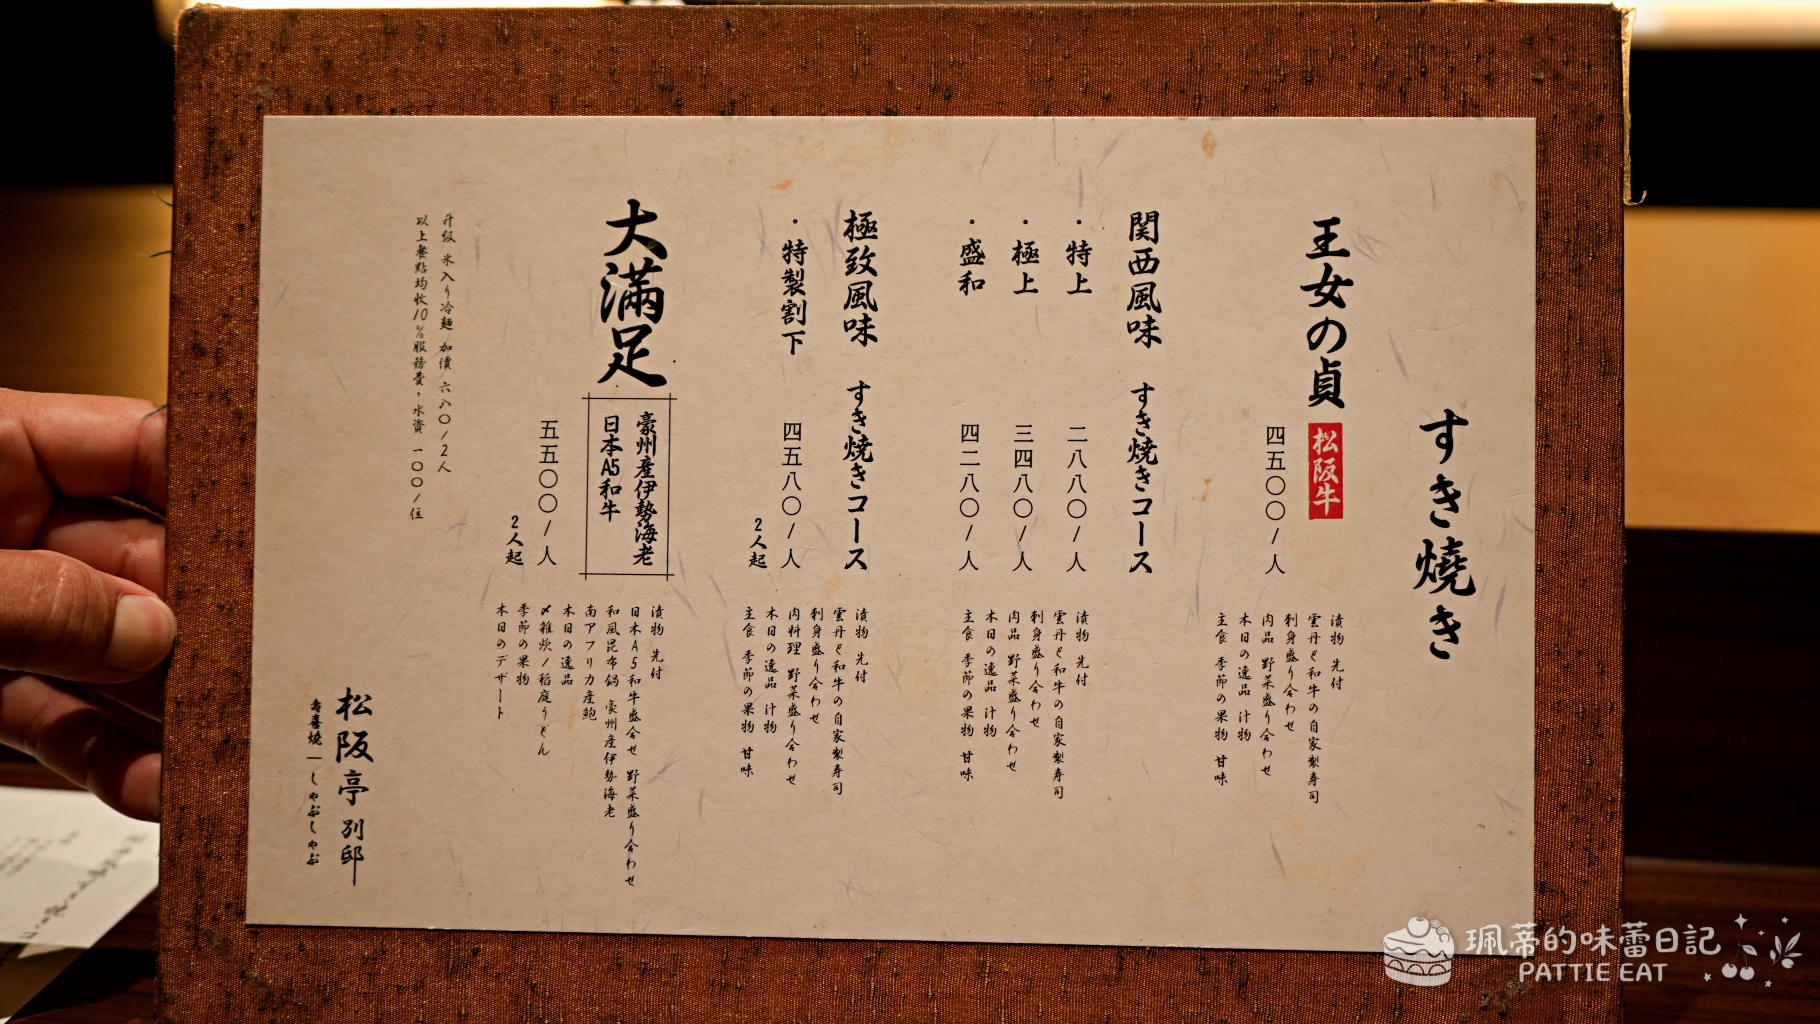 すき燒き
王女の貞 松阪牛
四五〇〇/人
漬物 先付
雲丹と和牛の自家製寿司
刺身盛り合わせ
肉品 野菜盛り合わせ
本日の逸品 汁物
主食 季節の果物 甘味
関西風味 すき焼きコース
・特上 二八八〇/人
・極上 三四八〇/人
・盛和 四二八〇/人
漬物 先付
雲丹と和牛の自家製寿司
刺身盛り合わせ
肉品 野菜盛り合わせ
本日の逸品 汁物
主食 季節の果物 甘味
極致風味 すき焼きコース
・特製割下 四五八〇/人
2人起
漬物 先付
雲丹と和牛の自家製寿司
刺身盛り合わせ
肉料理 野菜盛り合わせ
本日の逸品 汁物
主食 季節の果物 甘味
大満足
豪州産伊勢海老
日本A5和牛
五五〇〇/人
2人起
漬物 先付
日本A5和牛盛合せ 野菜盛り合わせ
和風昆布鍋 豪州産伊勢海老
南アフリカ産鮑
本日の逸品
〆雑炊/稲庭うどん
季節の果物
本日のデザート
升級 氷入り冷麺 加價 六八〇/2人
以上餐點均收10%服務費，水資 一〇〇/位
松阪亭 別邸
壽喜燒ーしゃぶしゃぶ
珮蒂的味蕾日記
PATTIE EAT